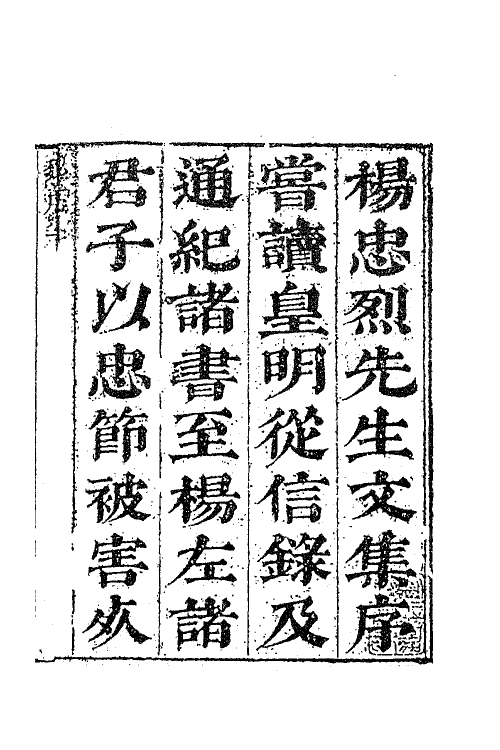 楊忠烈先生文集序
嘗讀皇明從信錄及
通紀諸書至楊左諸
君子以忠節被害㳄